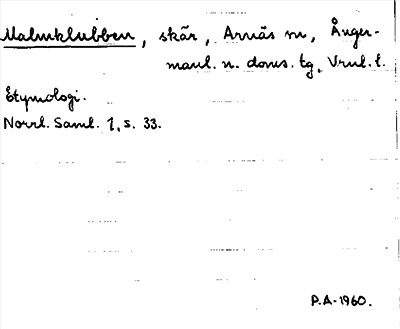 Malmklubben, skär, Arnäs sn, Ånger-
manl. n. doms. tg, Vnrl. l.
Etymologi.
Norrl. Saml. 1, s. 33.
P.A-1960.